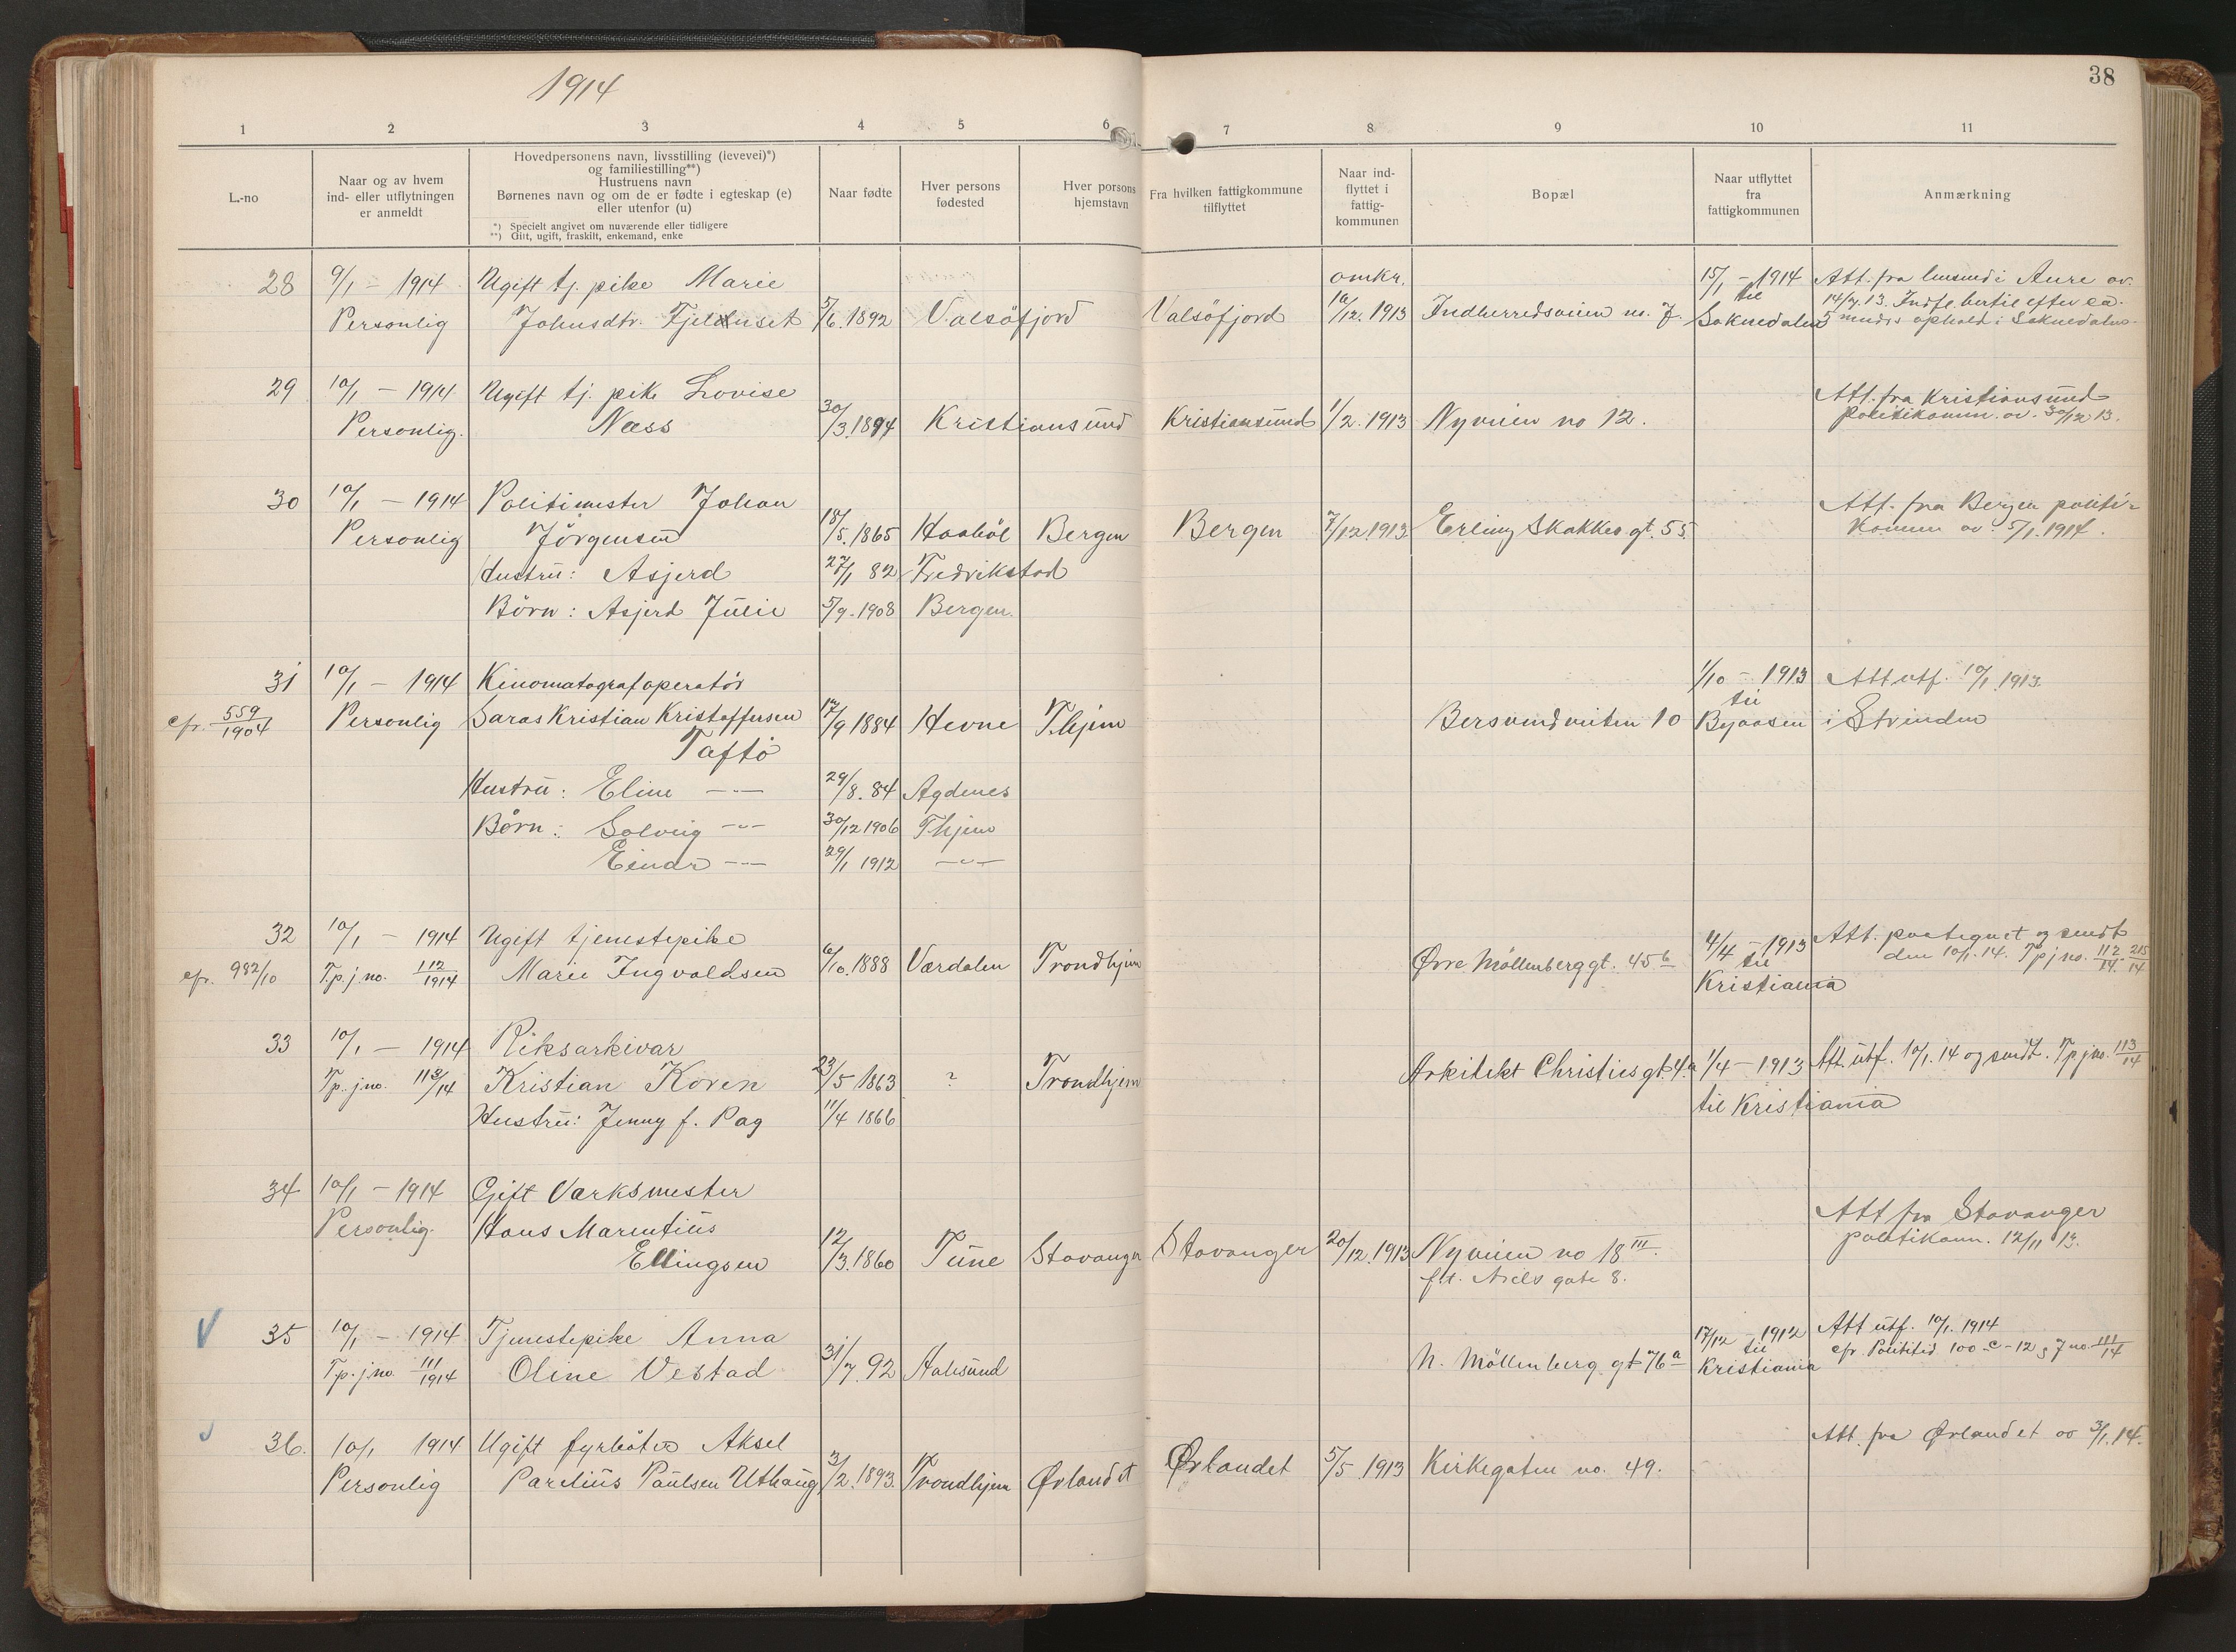 1914
38
1 2 3 4 5 6 7 8 9 10 11
L.-no
Naar og av hvem
ind- eller utflytningen
er anmeldt
Hovedpersonens navn, livsstilling (levevei)*)
og familiestilling**)
Hustruens navn
Børnenes navn og om de er fødte i egteskap (e)
eller utenfor (u)
*) Specielt angivet om nuværende eller tidligere
**) Gift, ugift, fraskilt, enkemand, enke
Naar fødte
Hver persons
fødested
Hver persons
hjemstavn
Fra hvilken fattigkommune
tilflyttet
Naar ind-
flyttet i
fattig-
kommunen
Bopæl
Naar utflyttet
fra
fattigkommunen
Anmærkning
28 9/1 - 1914 Ugift tj. pike Marie omkr. 15/1 - 1914 Att. fra lensmd i Aure av
Personlig Johnsdtr. Fjeldhuset 5/6.1892 Valsöfjord Valsöfjord 10/12.1913 Indherredsveien no. 7. til Soknedalen 14/7.13. Indfl. hertil efter ca.
5 mndrs ophold i Soknedalen.
29 10/1 - 1914 Ugift tj. pike Lovise Att. fra Kristiansund
Personlig. Næss 30/3.1894 Kristiansund Kristiansund 1/2.1913 Nyveien no 12. politikamm. av. 30/12 13.
30 10/1 - 1914 Politimester Johan Att. fra Bergen politi-
Personlig Jörgensen 18/5.1865 Haaböl Bergen Bergen 7/12.1913. Erling Skakkes gt. 55. kamm. av 5/1.1914.
Hustru: Asjerd 27/1 82 Fredrikstad
Börn: Asjerd Julie 5/9-1908 Bergen.
31 10/1 - 1914 Kinomatografoperatör 1/10 - 1913 Att utf. 10/1.1913.
cfr. 559/1904 Personlig Saras Kristian Kristoffersen 17/9 1884 Hevne T.hjem Bersvendveiten 10 til Byaasen i Strinden
Taftö
Hustru: Eline -"- 29/8.84 Agdenes
Börn: Solveig -"- 30/12 1906 T.hjem
Einar -"- 29/1 1912 -"-
32 10/1 - 1914 Ugift tjenestepike 4/4 - 1913 Att. paategnet og sendt
cfr. 982/10 T.p.j.no. 112/1914 Marie Ingvaldsen 6/10.1888 Værdalen Trondhjem Øvre Möllenberggt. 45b til den 10/1.14. Tpjno. 112/14. 215/14
Kristiania
33 10/1 - 1914 Riksarkivar
Tp.jno. 113/14 Kristian Koren 23/5 1863 ? Trondhjem Arkitekt Christies gt. 4a 1/4 - 1913 Att. utf. 10/1.14 og sendt. Tpjno. 113/14
Hustru: Jenny f. Pag 11/4 1866 til Kristiania
34 10/1 - 1914 Gift Værksmester Att fra Stavanger
Personlig. Hans Marentius politikam. 12/11 13.
Ellingsen 12/3.1860 Tune Stavanger Stavanger 20/12.1913 Nyveien no 18 III.
fl. Niels gate 8.
35 10/1 - 1914 Tjenestepike Anna 17/12 - 1912 Att utf. 10/1.1914
Tp.jno. 111/1914 Oline Vestad 31/7.92 Aalesund N. Möllenberg gt 76a til Kristiania cfr. Polititid 100-c-12 g J no. 111/14
36. 10/1 1914 Ugift fyrböter Aksel Att. fra Ørlandet av 3/1.14.
Personlig Parelius Paulsen Uthaug 3/2.1893. Trondhjem Ørlandet Ørlandet 5/5 1913 Kirkegaten no. 49.